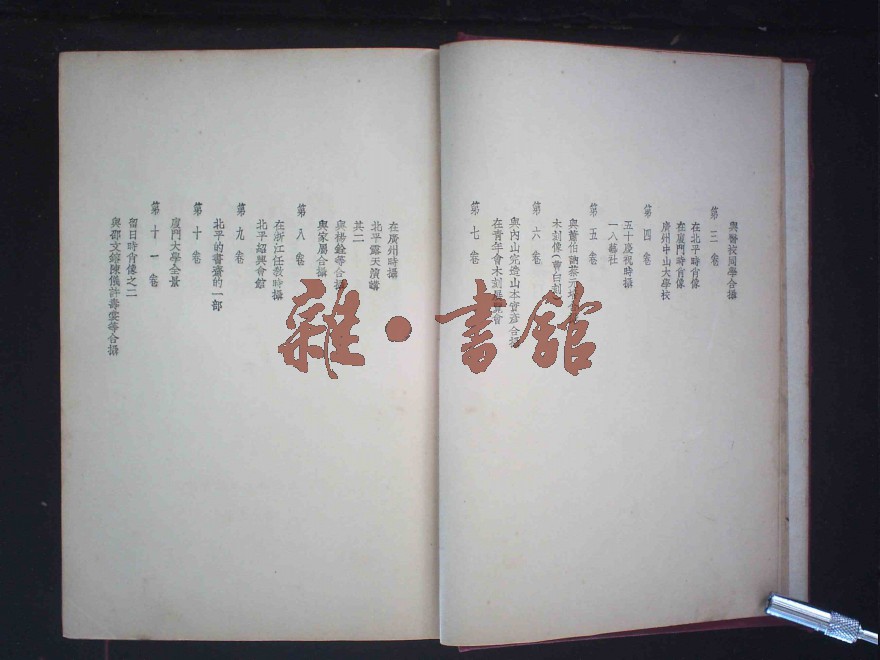 與醫校同學合攝
第三卷
在北平時肖像
在廈門時肖像
廣州中山大學校
第四卷
五十慶祝時攝
一八藝社
第五卷
與蕭伯訥蔡元
木刻像(曹白刻
第六卷
與內山完造山本實彥合攝
在青年會木刻展覽會
第七卷
在廣州時攝
北平露天演講
其二
與楊銓等合攝
與家屬合攝
第八卷
在浙江任教時攝
北平紹興會館
第九卷
北平的書齋的一部
第十卷
廈門大學全景
第十一卷
留日時肖像之二
與邵文鎔陳儀許壽裳等合攝
雜·書館